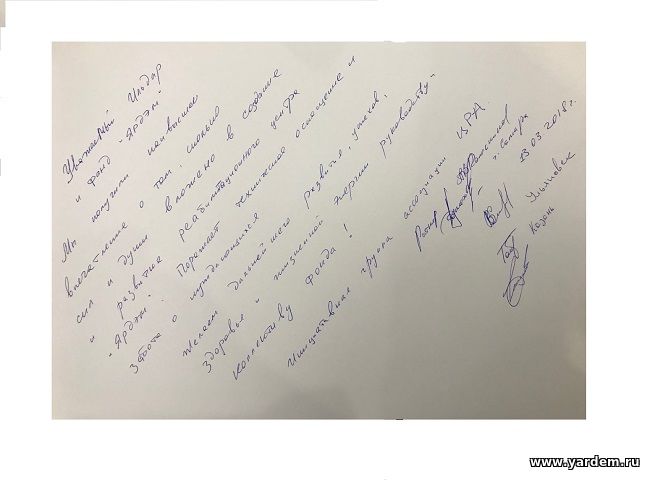 Уважаемый Ильдар
и Фонд "Ярдэм"
Мы получили наивысшее
впечатление о том сколько
сил и души вложено в создание
и развитие реабилитационного центра
"Ярдэм". Поражает техническое оснащение и
забота о нуждающихся
Желаем дальнейшего развития, успехов,
здоровья и жизненной энергии руководству
коллективу Фонда!
Инициативная группа ассоциации ЦРА
г. Самара
13.03.2018г.
Ульяновск
Казань
www.yardem.ru